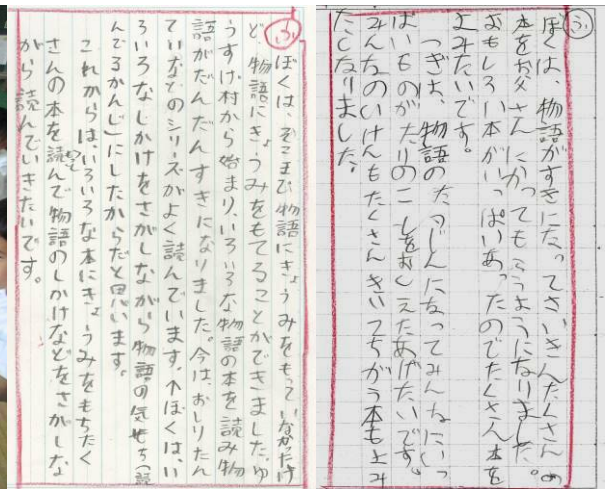 ふ
ぼくは、物語がすきになってさいきんたくさんの
本をお父さんにかってもらうようになりました。
おもしろい本がいっぱいあったのでたくさん本を
よみたいです。
つぎは、物語のたつじんになってみんなにいっ
ぱいものがたりのことをおしえたあげたいです。
みんなのいけんもたくさんきいてちがう本もよみ
たくなりました。
ふ
ぼくは、そこまで物語にきょうみをもっていなかたけ
ど、物語にきょうみをもてることができました。ゆ
うすげ村から始まり、いろいろな物語の本を読み物
語がだんだんすきになりました。今は、おしりたん
ていなどのシリーズがよく読んでいます。↑ぼくは、い
ろいろなしかけをさがしながら物語の気もち(読
んでるかんじ)にしたからだと思います。
これからは、いろいろな本にきょうみをもちたく
さんの本を読んで物語のしかけなどをさがしな
がら読んでいきたいです。